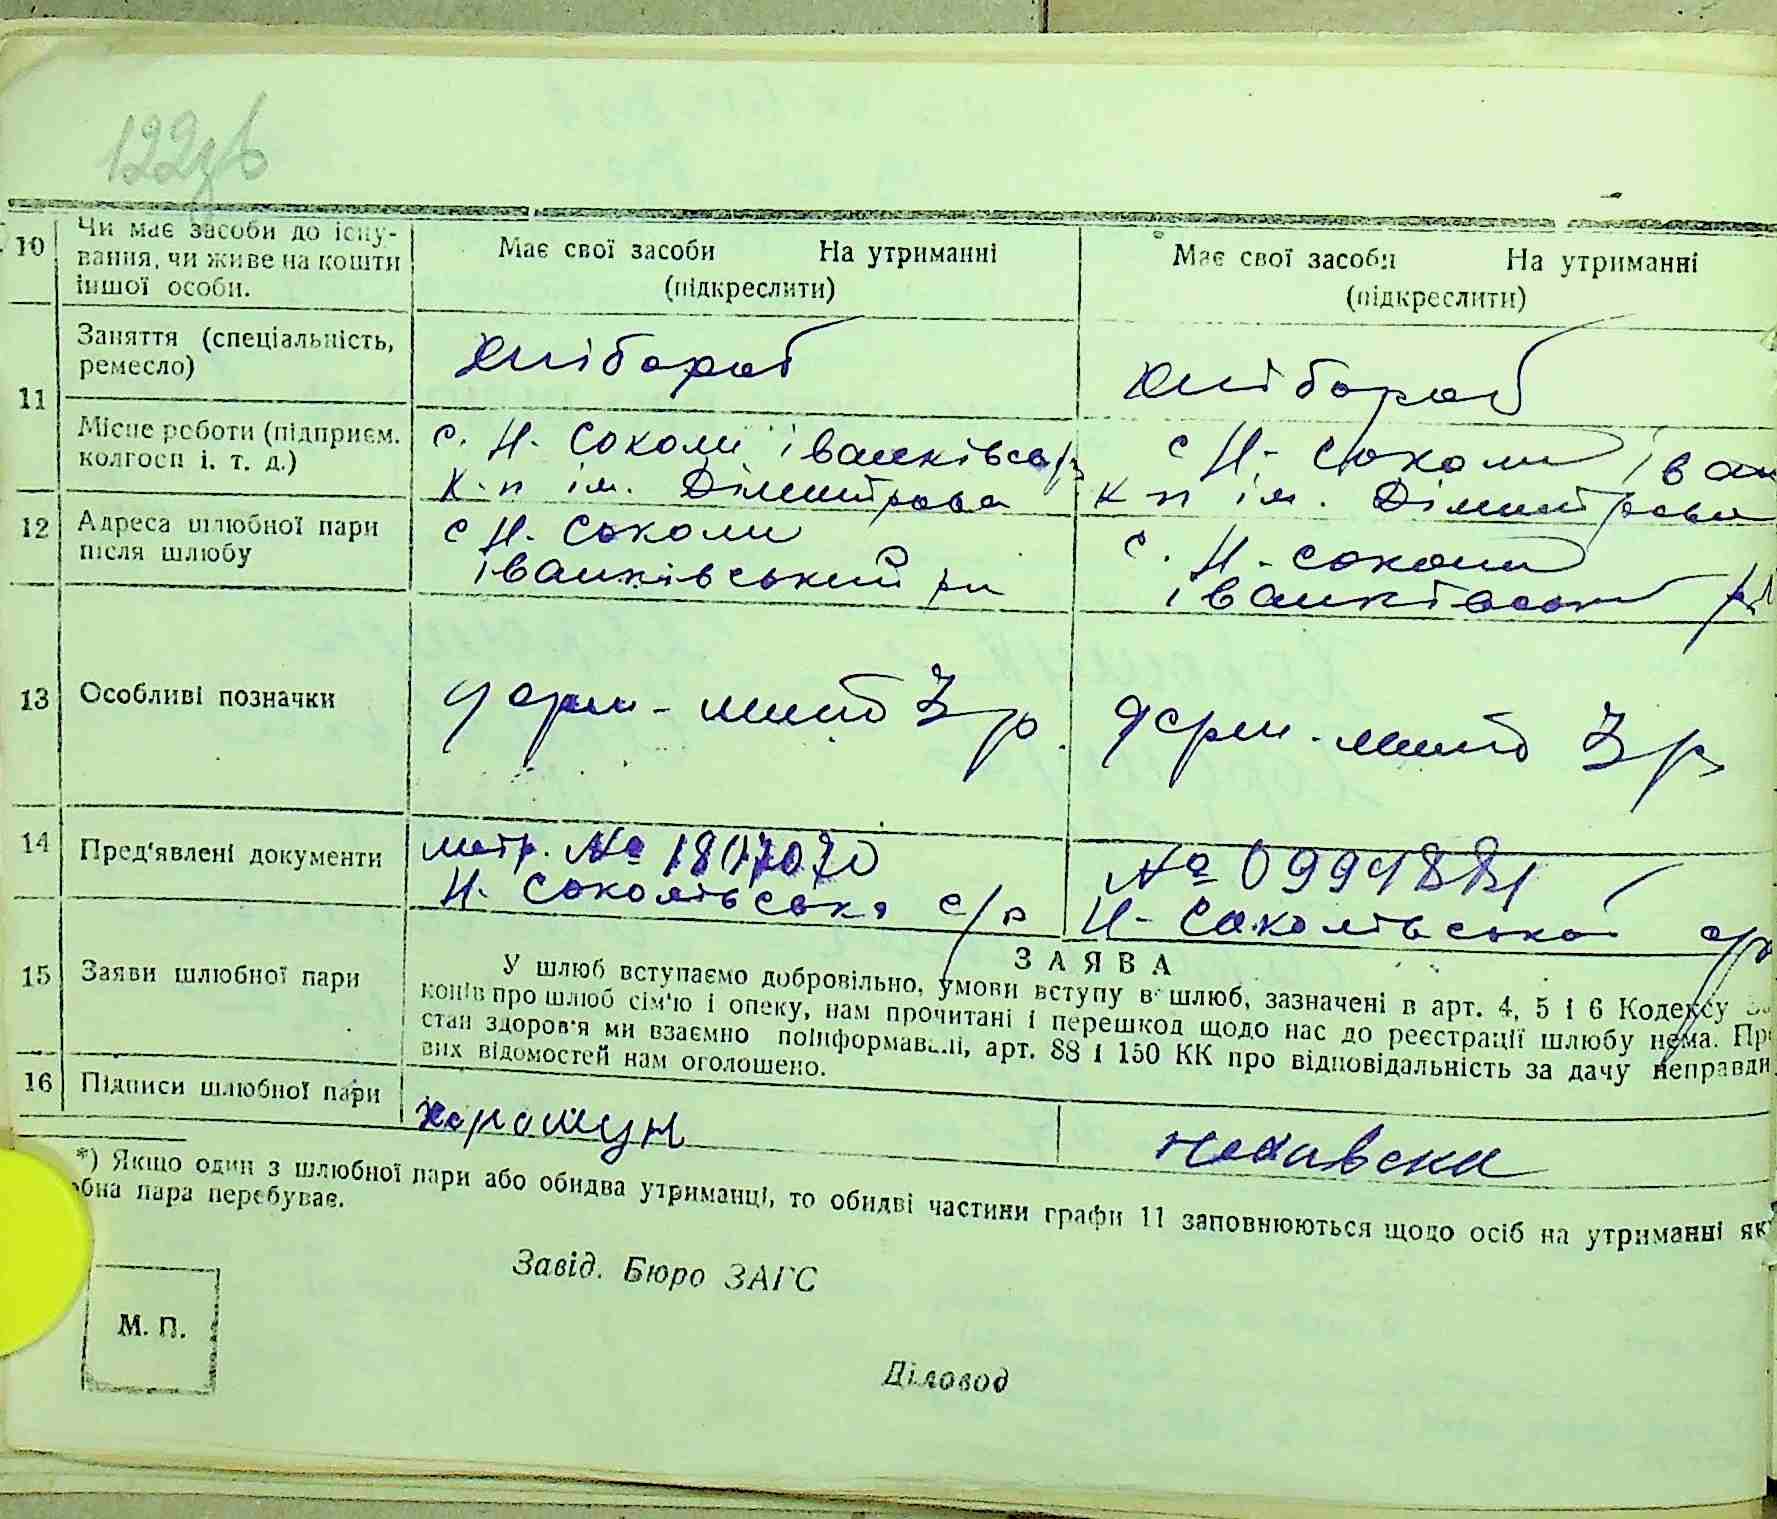 122зв
10 Чи має засоби до існу-
вання, чи живе на кошти
іншої особи.
Має свої засоби На утриманні
(підкреслити)
Має свої засоби На утриманні
(підкреслити)
11 Заняття (спеціальність,
ремесло)
хлібороб
хлібороб
Місце роботи (підприєм.
колгосп і. т. д.)
с. Н. Соколи Іванківськ р
к-п ім. Дімитрова
с Н- Соколи Іван
к-п ім. Дімитрова
12 Адреса шлюбної пари
після шлюбу
с Н. Соколи
Іванківський рн
с. Н- соколи
Іванківський р
13 Особливі позначки
держ-мито 3 р.
держ-мито 3 р
14 Пред'явлені документи
метр. № 1807070
Н. Соколівська с/р
№ 0994881
Н- Соколівської с/р
15 Заяви шлюбної пари
ЗАЯВА
У шлюб вступаємо добровільно, умови вступу в шлюб, зазначені в арт. 4, 5 і 6 Кодексу
конів про шлюб сім'ю і опеку, нам прочитані і перешкод щодо нас до реєстрації шлюбу нема. Про
стан здоров'я ми взаємно поінформавалі, арт. 88 і 150 КК про відповідальність за дачу неправди
вих відомостей нам оголошено.
16 Підписи шлюбної пари
*) Якщо один з шлюбної пари або обидва утриманці, то обидві частини графи 11 заповнюються щодо осіб на утриманні як
обна пара перебуває.
Завід. Бюро ЗАГС
М. П.
Діловод